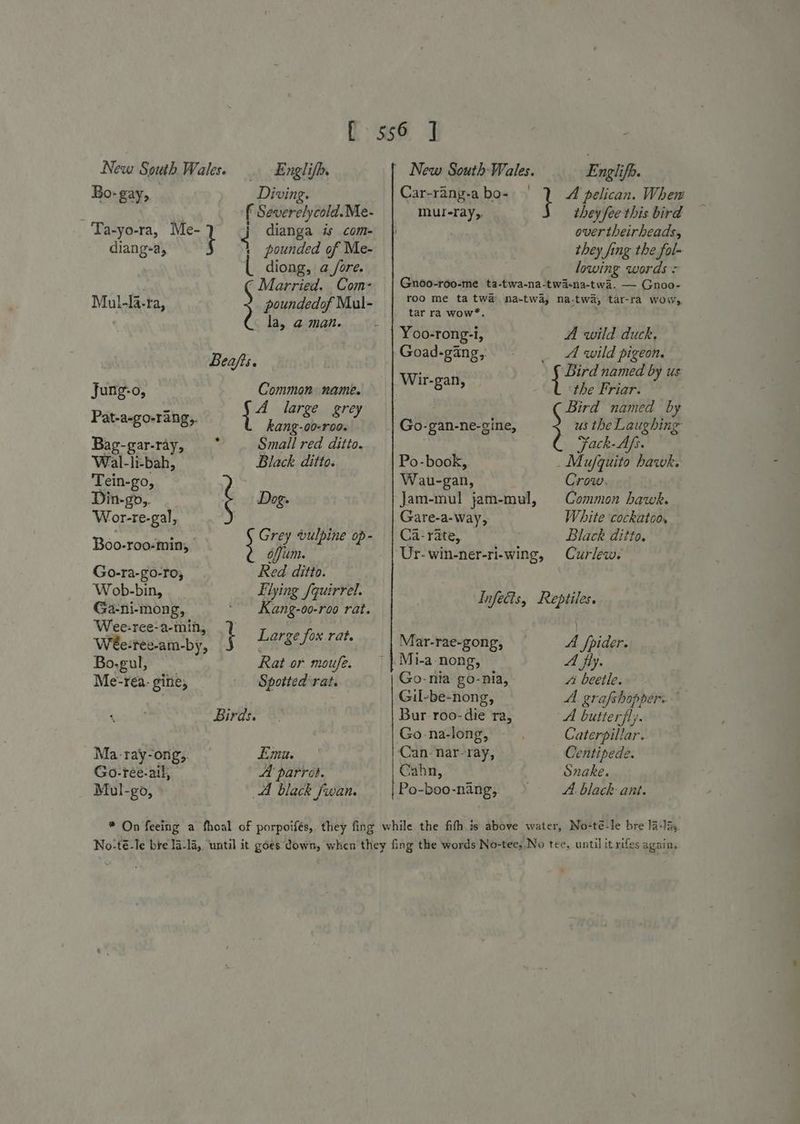 [ 556 ]
New South Wales. Engliſh.
Bo-gay, Diving.
Ta-yo-ra, Me-diang-a, { Severely cold. Me-
dianga is com-
pounded of Me-
diong, a ſore.
Mul-lā-ra, { Married. Com-
poundedof Mul-
la, a man.
Beaſts.
Jung-o, Common name.
Pat-a-go-rāng, { A large grey
kang-oo-roo.
Bag-gar-rāy, Small red ditto.
Wal-li-bah, Black ditto.
Tein-go,
Din-go, } Dog.
Wor-re-gal,
Boo-roo-min, { Grey vulpine op-
oſſum.
Go-ra-go-ro, Red ditto.
Wob-bin, Flying ſquirrel.
Ga-ni-mong, Kang-oo-roo rat.
Wee-ree-a-min,
Wée-ree-am-by, } Large fox rat.
Bo-gul, Rat or mouſe.
Me-rea-gine, Spotted rat.
Birds.
Ma-ray-ong, Emu.
Go-ree-ail, A parrot.
Mul-go, A black ſwan.
New South Wales. Engliſh.
Car-rāng-a bo- } A pelican. When
mur-ray, they ſee this bird
over their heads,
they ſing the fol-
lowing words :
Gnoo-roo-me ta-twa-na-twā-na-twā. — Gnoo-
roo me ta twā na-twā, na-twā, tar-ra wow,
tar ra wow*.
Yoo-rong-i, A wild duck.
Goad-gāng, A wild pigeon.
Wir-gan, { Bird named by us
the Friar.
Go-gan-ne-gine, { Bird named by
us the Laughing
Jack-Aſs.
Po-book, Muſquito hawk.
Wau-gan, Crow.
Jam-mul jam-mul, Common hawk.
Gare-a-way, White cockatoo,
Cā-rāte, Black ditto.
Ur-win-ner-ri-wing, Curlew.
Inſects, Reptiles.
Mar-rae-gong, A ſpider.
Mi-a nong, A fly.
Go-nia go-nia, A beetle.
Gil-be-nong, A graſshopper.
Bur roo-die ra, A butterfly.
Go-na-long, Caterpillar.
Can-nar-ray, Centipede.
Cahn, Snake.
Po-boo-nāng, A black ant.
* On ſeeing a ſhoal of porpoiſes, they ſing while the fiſh is above water, No-tē-le bre lā-lā,
No-tē-le bre lā-lā, until it goes down, when they ſing the words No-tee, No tee, until it riſes again.